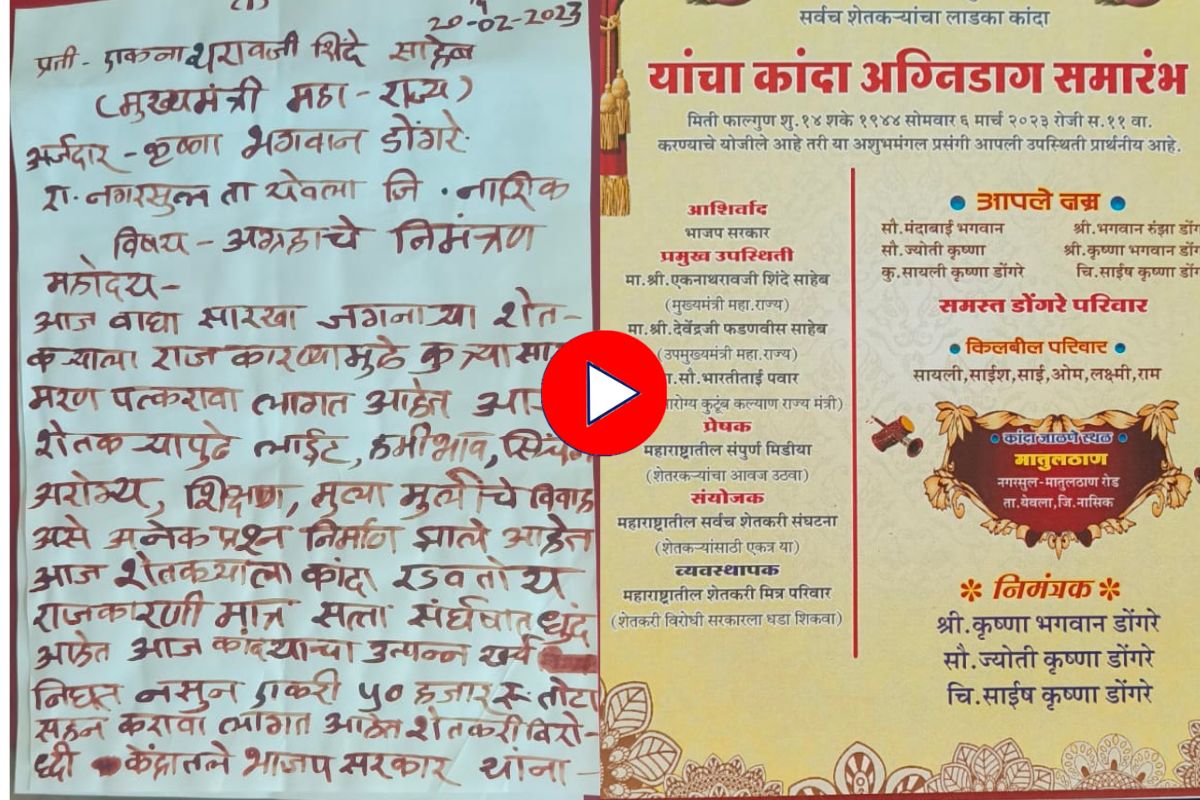 20-02-2023
प्रती - एकनाथरावजी शिंदे साहेब
(मुख्यमंत्री महा-राज्य)
अर्जदार - कृष्णा भगवान डोंगरे.
रा. नगरसुल ता येवला जि. नाशिक
विषय - अग्रहाचे निमंत्रण
महोदय -
आज वाघा सारखा जगनाऱ्या शेत-
कऱ्याला राजकारण्यामुळे कुत्र्या
मरण पत्करावा लागत आहेत
शेतकऱ्यापुढे लाईट, हमीभाव,
अरोग्य, शिक्षण, मुला मुलींचे विवाह
असे अनेक प्रश्न निर्माण झाले आहेत
आज शेतकऱ्यांला कांदा रडवतोय
राजकारणी मात्र सत्ता संर्घषात धुंद
आहेत आज कांदयाचा उत्पन्न खर्च
निघत नसुन एकरी ५० हजार रू तोटा
सहन करावा लागत आहेत शेतकरी विरो-
ध्दी केंद्रातले भाजप सरकार यांना -
सर्वच शेतकऱ्यांचा लाडका कांदा
यांचा कांदा अग्निडाग समारंभ
मिती फाल्गुण शु.१४ शके १९४४ सोमवार ६ मार्च २०२३ रोजी स.११ वा.
करण्याचे योजीले आहे तरी या अशुभमंगल प्रसंगी आपली उपस्थिती प्रार्थनीय आहे.
आशिर्वाद
भाजप सरकार
प्रमुख उपस्थिती
मा.श्री.एकनाथरावजी शिंदे साहेब
(मुख्यमंत्री महा.राज्य)
मा.श्री.देवेंद्रजी फडणवीस साहेब
(उपमुख्यमंत्री महा.राज्य)
सौ.भारतीताई पवार
कुटूंब कल्याण राज्य मंत्री)
प्रेषक
महाराष्ट्रातील संपुर्ण मिडीया
(शेतरकऱ्यांचा आवज उठवा)
संयोजक
महाराष्ट्रातील सर्वच शेतकरी संघटना
(शेतकऱ्यांसाठी एकत्र या)
व्यवस्थापक
महाराष्ट्रातील शेतकरी मित्र परिवार
(शेतकरी विरोधी सरकारला धडा शिकवा)
आपले नम्र
सौ.मंदाबाई भगवान श्री.भगवान रुंझा
सौ.ज्योती कृष्णा श्री.कृष्णा भगवान
कु.सायली कृष्णा डोंगरे चि.साईष कृष्णा
समस्त डोंगरे परिवार
किलबील परिवार
सायली,साईश,साई,ओम,लक्ष्मी,राम
कांदा जाळणे स्थळ
मातुलठाण
नगरसुल-मातुलठाण रोड
ता.येवला,जि.नासिक
निमंत्रक
श्री.कृष्णा भगवान डोंगरे
सौ.ज्योती कृष्णा डोंगरे
चि.साईष कृष्णा डोंगरे